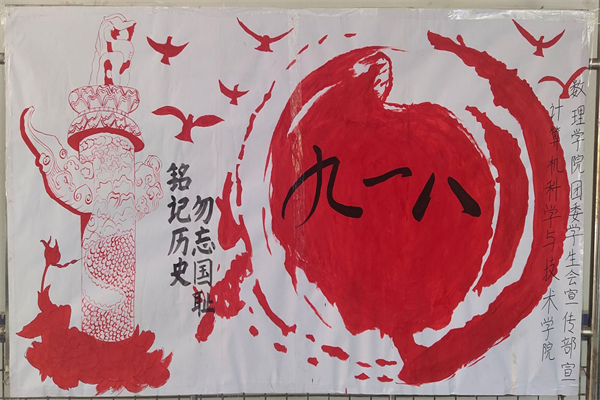 九一八
铭记历史
勿忘国耻
数理学院团委学生会宣传部宣
计算机科学与技术学院